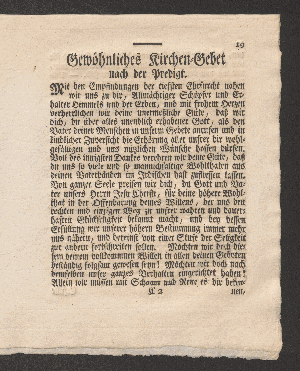 19
Gewöhnliches Kirchen-Gebet
nach der Predigt.
Mit den Empfindungen der tiefsten Ehrfurcht nahen
wir uns zu dir, Allmächtiger Schöpfer und Er-
halter Himmels und der Erden, und mit frohem Herzen
verherrlichen wir deine unermeßliche Güte, daß wir
dich, du über alles unendlich erhabener Gott, als den
Vater deiner Menschen in unserm Gebete anrufen und in
kindlicher Zuversicht die Erhörung aller unsrer dir wohl-
gefälligen und uns nützlichen Wünsche hoffen dürfen.
Voll des innigsten Dankes verehren wir deine Güte, daß
du uns so viele und so mannichfaltige Wohlthaten aus
deinen Vaterhänden im Irdischen hast zufliessen lassen.
Von ganzer Seele preisen wir dich, du Gott und Va-
ter unsers Herrn Jesu Christi, für deine höhere Wohl-
that in der Offenbarung deines Willens, der uns den
rechten und einzigen Weg zu unsrer wahren und dauer-
haften Glückseligkeit bekannt macht, und bey dessen
Erfüllung wir unserer höhern Bestimmung immer mehr
uns nähern, und dereinst von einer Stufe der Seligkeit
zur andern fortschreiten sollen. Möchten wir doch die-
sem deinem vollkommnen Willen in allen deinen Geboten
beständig folgsam gewesen seyn! Möchten wir doch nach
demselben unser ganzes Verhalten eingerichtet haben!
Allein wir müssen mit Schaam und Reue es dir beken-
C 2 nen,